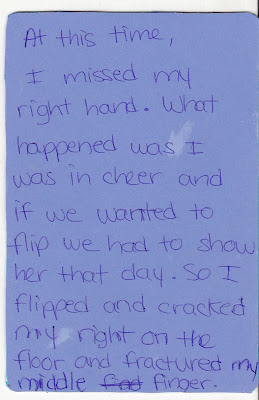 At this time,
I missed my
right hand. What
happened was I
was in cheer and
if we wanted to
flip we had to show
her that day. So I
flipped and cracked
my right on the
floor and fractured my
middle finger.